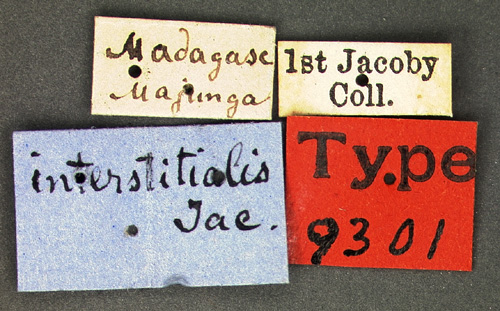 Madagasc
Majunga
1st Jacoby
Coll.
interstitialis
Jac.
Type
9301